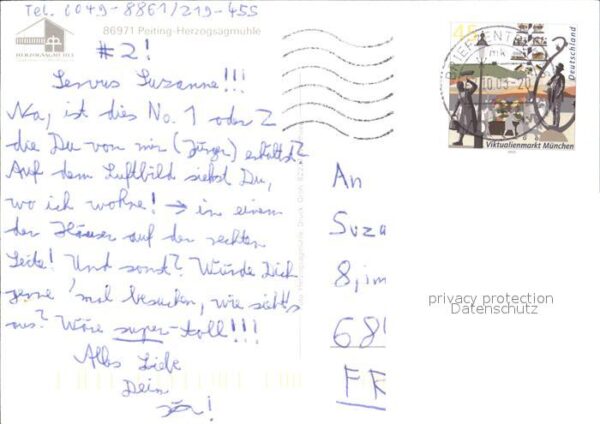 Tel. (049-8861/219-455
HERZOGSÄGMÜHLE
86971 Peiting-Herzogsägmühle
#2!
Servus Suzanne!!!
Na, ist dies No. 1 oder 2
die Du von mir (Jürger) erhältst?
Auf dem Luftbild siehst Du,
wo ich wohne! → in einem
der Häuser auf der rechten
Seite! Und sonst? Würde Dich
gerne 'mal besuchen, wie sieht's
aus? Wäre super-toll!!!
Alles Liebe
Dein
45
Deutschland
BRIEFZENTRUM
Viktualienmarkt München
An
Suza
8, im
68
FR
privacy protection
Datenschutz